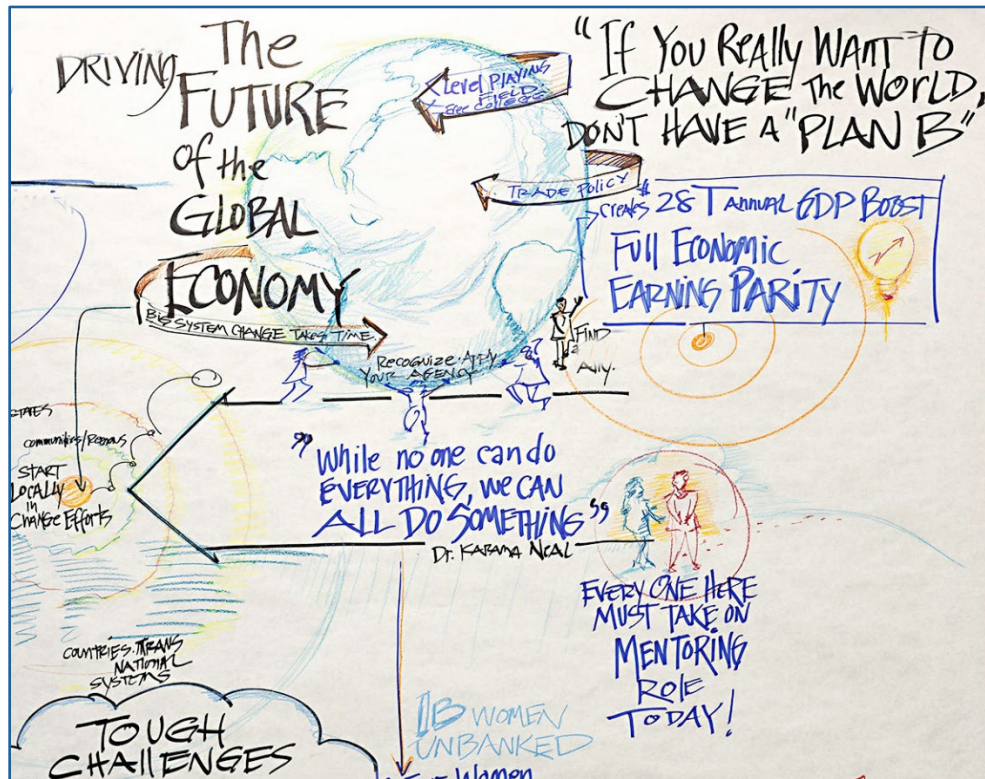 DRIVING
The
FUTURE
of the
GLOBAL
ECONOMY
BIG SYSTEM CHANGE TAKES TIME.
Level PLAYING
FIELD
free college
TRADE POLICY
"If You Really WANT TO
CHANGE the WORLD,
DON'T HAVE A "PLAN B"
Creates $28T Annual GDP Boost
Full Economic
Earning Parity
FIND
a
Ally.
Recognize
YOUR AGENCY
STATES
Communities/Regions
START
LOCALLY
in
Change Efforts
"While no one can do
EVERYTHING, WE CAN
ALL DO SOMETHING"
Dr. KARAMA NEAL
EVERY ONE HERE
MUST TAKE ON
MENTORING
ROLE
TODAY!
COUNTRIES. TRANS
NATIONAL
SYSTEMS
TOUGH
CHALLENGES
1B WOMEN
UNBANKED
Women